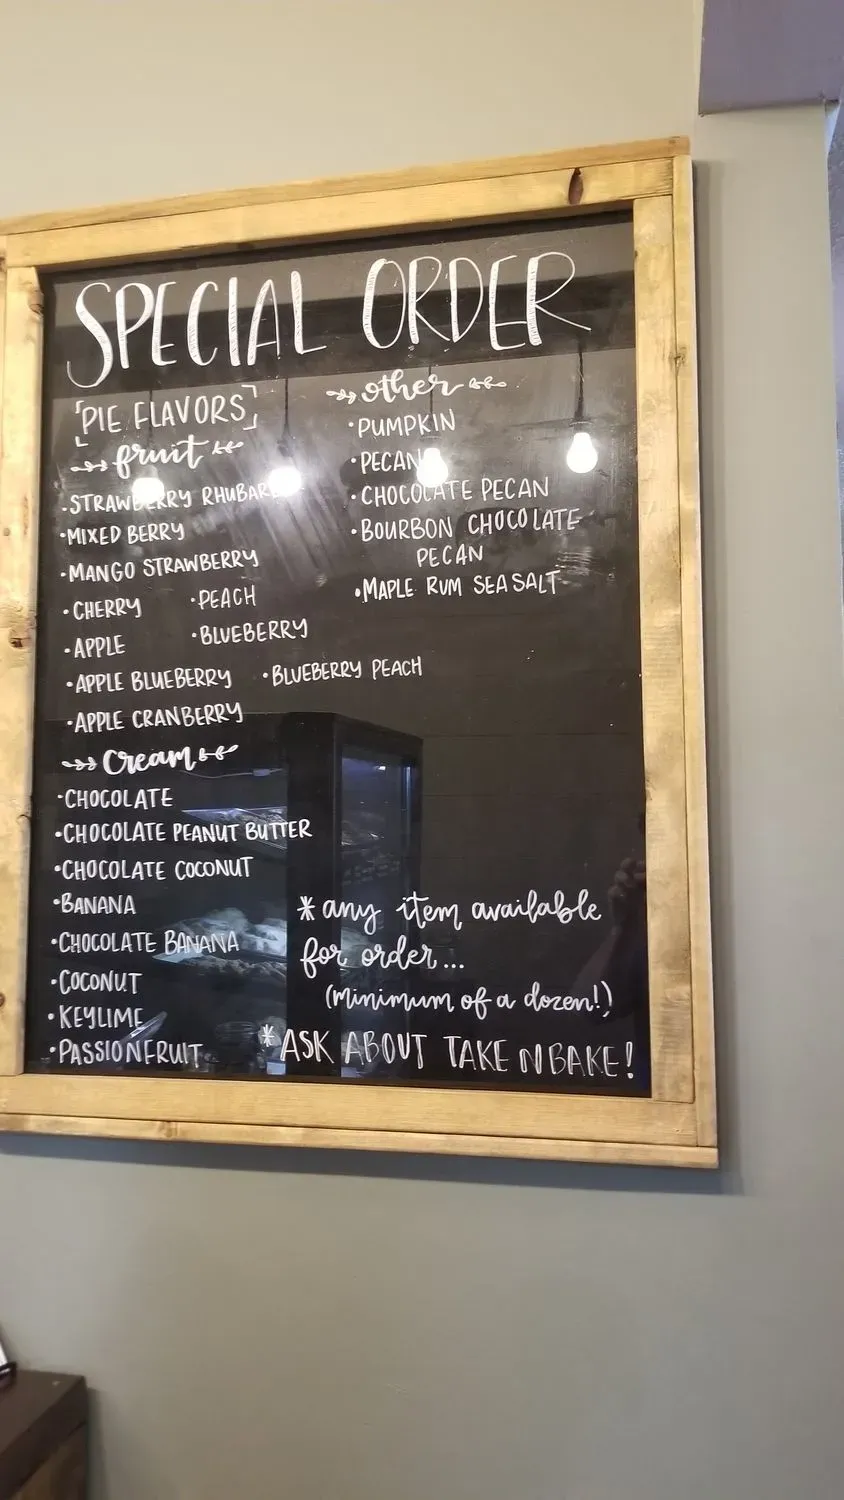 SPECIAL ORDER
[PIE FLAVORS]
fruit
·STRAWBERRY RHUBARB
·MIXED BERRY
·MANGO STRAWBERRY
·CHERRY ·PEACH
·APPLE ·BLUEBERRY
·APPLE BLUEBERRY ·BLUEBERRY PEACH
·APPLE CRANBERRY
cream
·CHOCOLATE
·CHOCOLATE PEANUT BUTTER
·CHOCOLATE COCONUT
·BANANA
·CHOCOLATE BANANA
·COCONUT
·KEYLIME
·PASSIONFRUIT
other
·PUMPKIN
·PECAN
·CHOCOLATE PECAN
·BOURBON CHOCOLATE
PECAN
·MAPLE RUM SEA SALT
*any item available
for order...
(minimum of a dozen!)
*ASK ABOUT TAKE N BAKE!